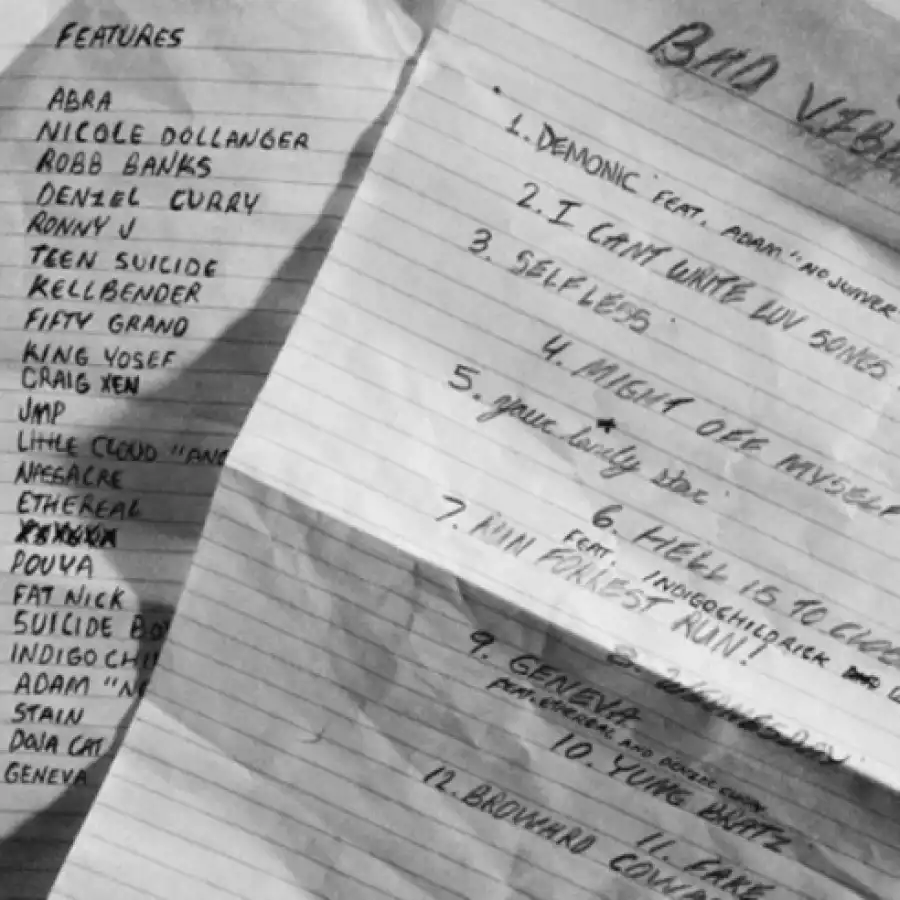 FEATURES
ABRA
NICOLE DOLLANGER
ROBB BANKS
DENZEL CURRY
RONNY J
TEEN SUICIDE
KELLBENDER
FIFTY GRAND
KING YOSEF
CRAIG XEN
JMP
LITTLE CLOUD "AND
NASSACRE
ETHEREAL
POUYA
FAT NICK
SUICIDE BO
INDIGO CHI
ADAM "N
STAIN
DOJA CAT
GENEVA
BAD VIB
1. DEMONIC FEAT. ADAM "NO JUMPER
2. I CANT WRITE LUV SONGS
3. SELFLESS
4. MIGHT OFF MYSELF
5. your lonely star
6. HELL IS TO CLOSE
FEAT. INDIGOCHILDRICK
7. RUN FORREST RUN!
8.
9. GENEVA
FEAT. ETHEREAL AND DENZEL CURRY
10. YUNG BRATZ
11. FAKE
12. BROWARD